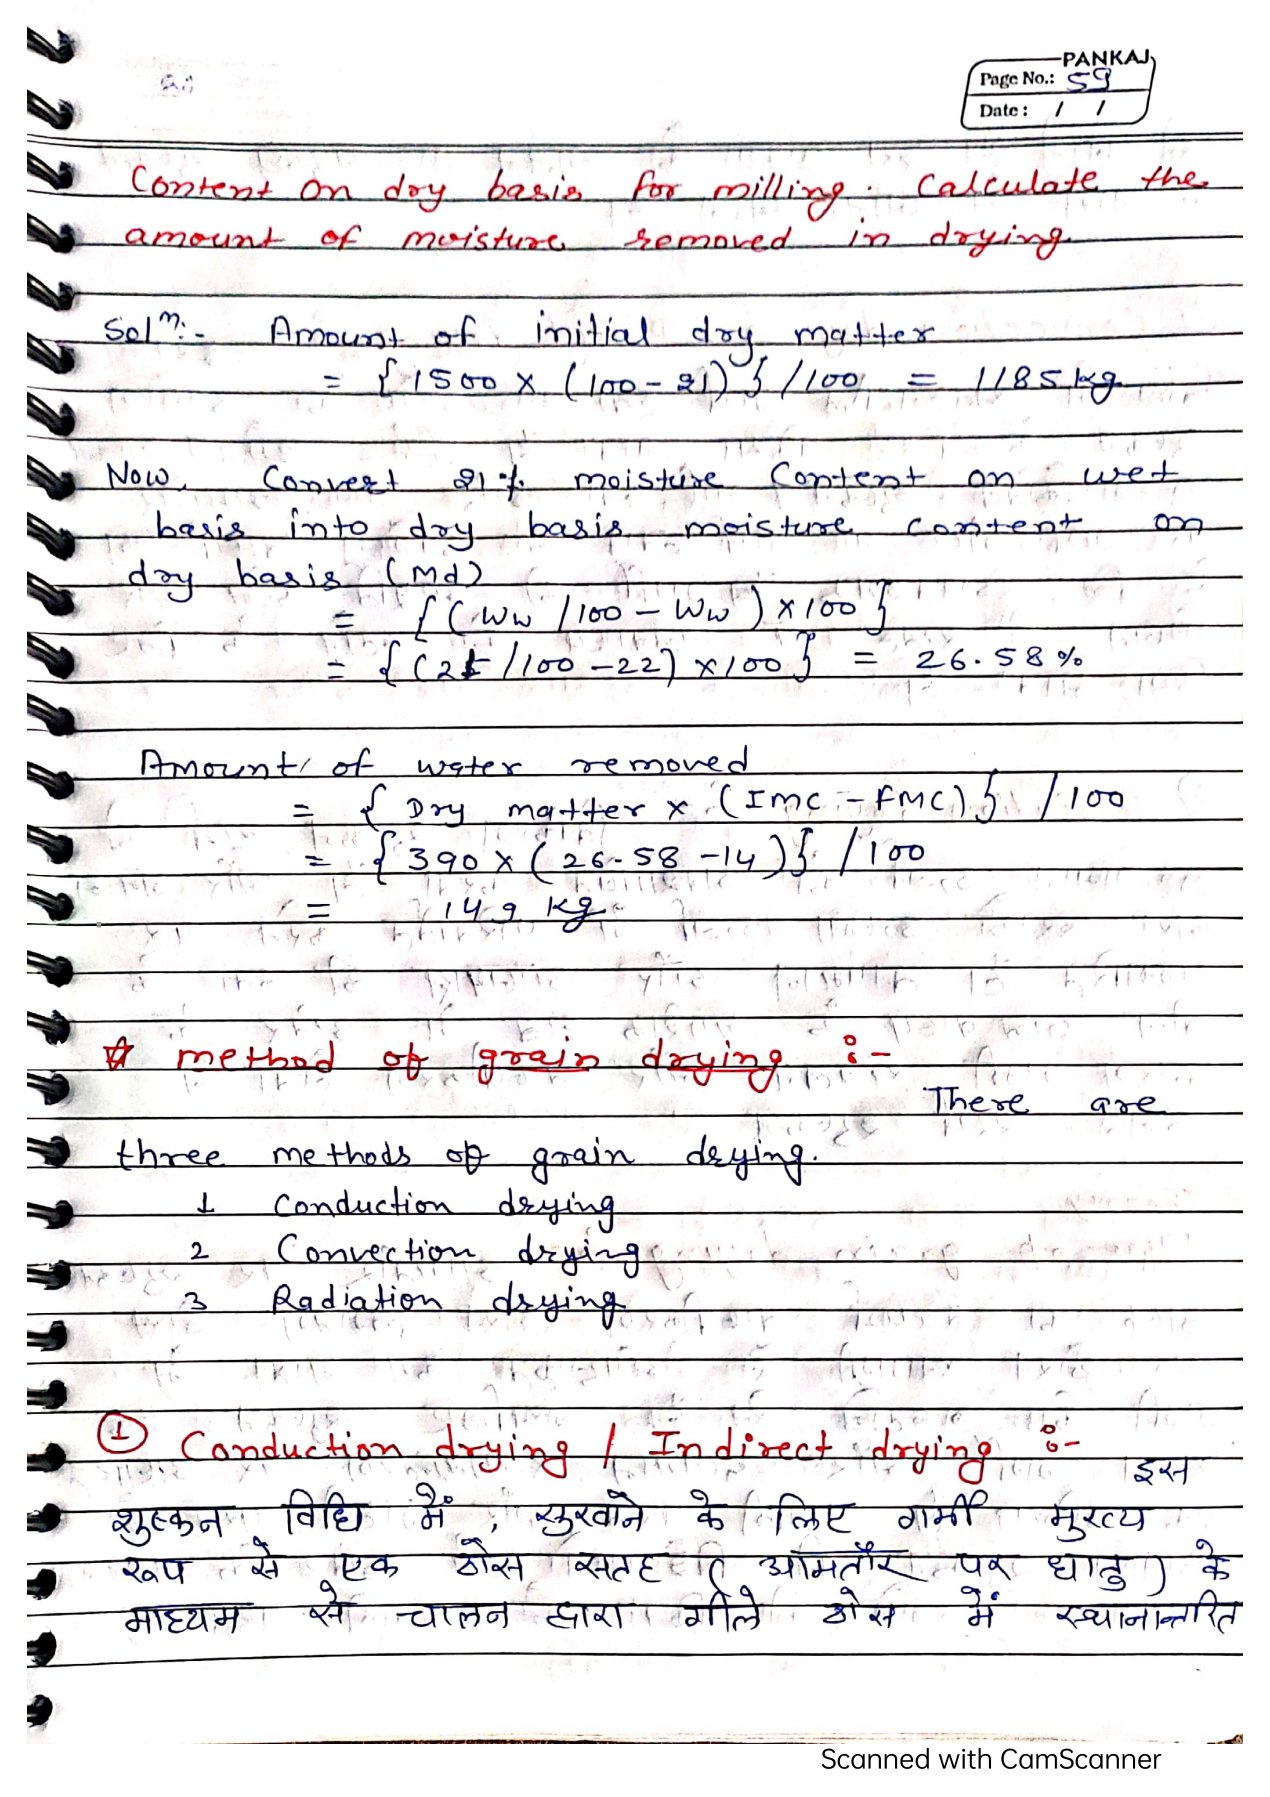 PANKAJ
Page No.: 59
Date: / /
Content on dry basis for milling. Calculate the
amount of moisture removed in drying.
Solⁿ:- Amount of initial dry matter
= {1500 × (100-21)} /100 = 1185 kg.
Now, Convert 21% moisture Content on wet
basis into dry basis moisture content on
dry basis (Md)
= {(Ww /100 - Ww) × 100}
= {(21 /100 -22) ×100} = 26.58 %
Amount of water removed
= {Dry matter × (IMC - FMC)} /100
= {390 × (26.58 -14)} /100
= 149 kg.
☆ method of grain drying :-
There are
three methods of grain drying.
1 Conduction drying
2 Convection drying
3 Radiation drying
① Conduction drying / Indirect drying :-
इस
शुष्कन विधि में, सुखाने के लिए गर्मी मुख्य
रूप से एक ठोस सतह ( आमतौर पर धातु ) के
माध्यम से चालन द्वारा गीले ठोस में स्थानान्तरित
Scanned with CamScanner